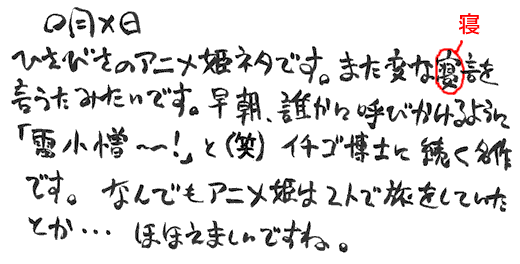 寝
〇月×日
ひさびさのアニメ姫ネタです。また変な寝言を
言うたみたいです。早朝、誰かに呼びかけるように
「雷小僧〜〜!」と(笑)イチゴ博士に続く名作
です。なんでもアニメ姫は2人で旅をしていた
とか… ほほえましいですね。